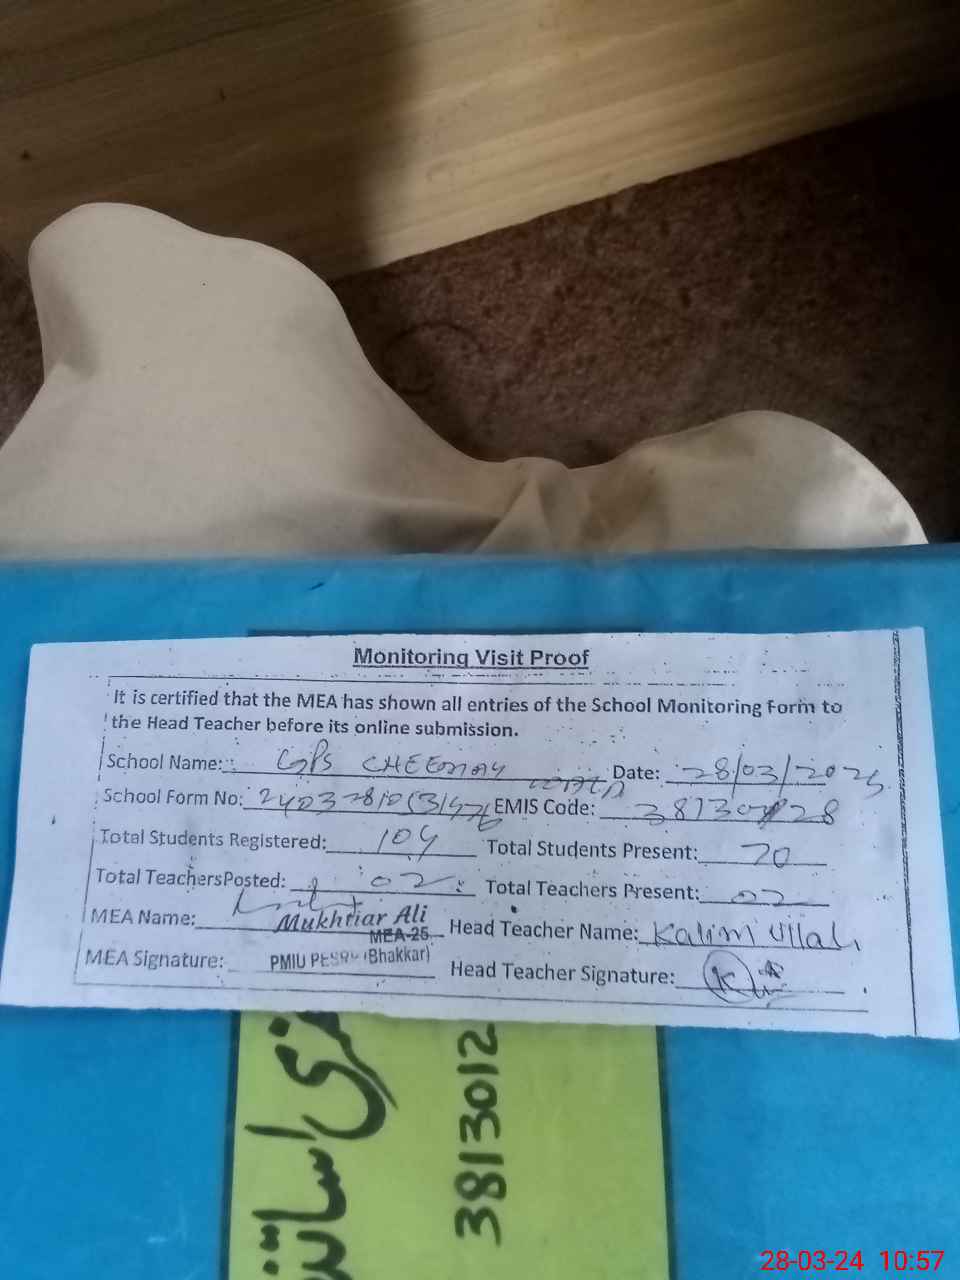 Monitoring Visit Proof
It is certified that the MEA has shown all entries of the School Monitoring Form to
the Head Teacher before its online submission.
School Name: GPS CHEENAY Date: 28/03/2024
School Form No: EMIS Code:
Total Students Registered: 104 Total Students Present: 70
Total TeachersPosted: 02 Total Teachers Present: 02
MEA Name: Mukhtiar Ali Head Teacher Name: Kalim Ullah
MEA-25
MEA Signature: PMIU PESRP (Bhakkar) Head Teacher Signature:
3813012
28-03-24 10:57